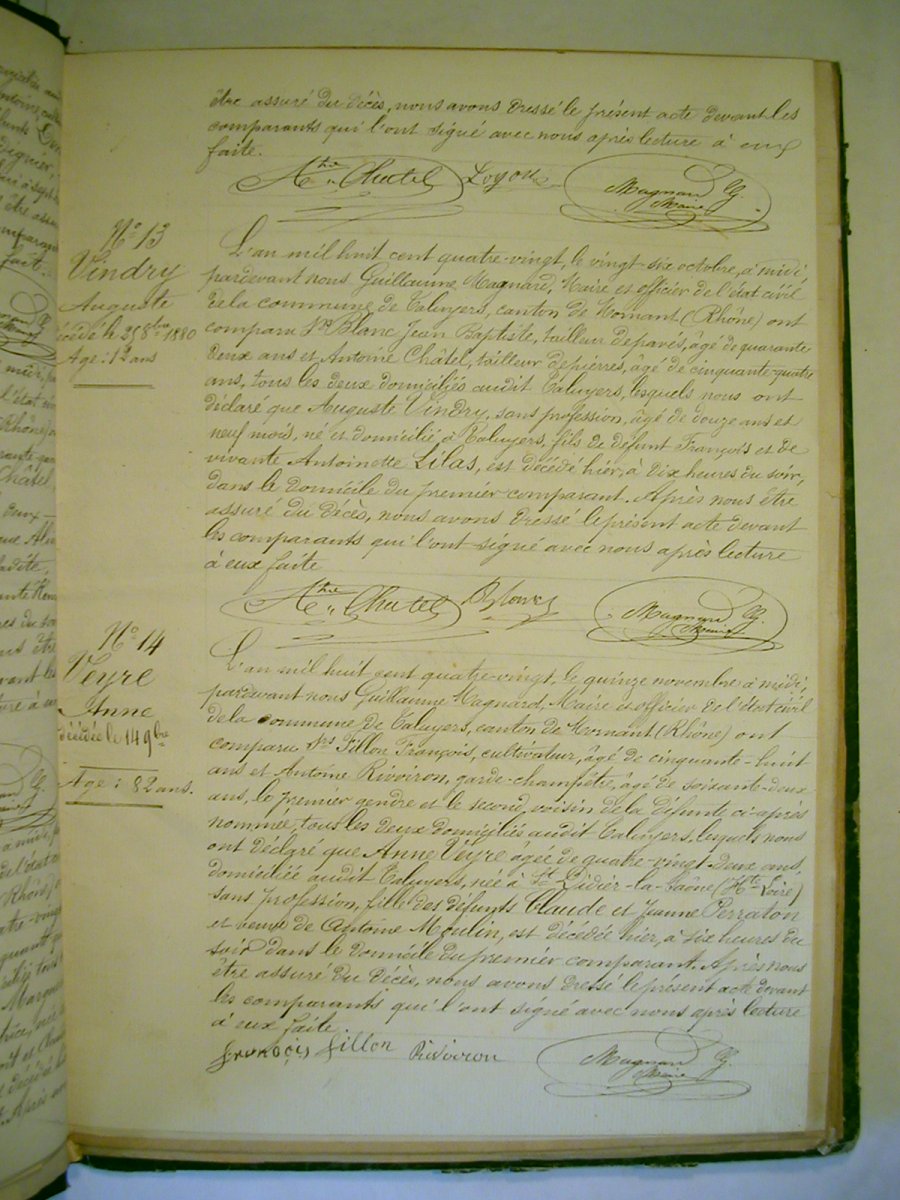 être assuré du décès, nous avons dressé le présent acte devant les
comparants qui l'ont signé avec nous après lecture à eux
faite.
Magnard
Maire
N° 13
Vindry
Auguste
décédé le 25 8bre 1880
Age : 12 ans
L'an mil huit cent quatre-vingt, le vingt-six octobre, à midi,
pardevant nous Guillaume Magnard, Maire et officier de l'état civil
de la commune de Taluyers, canton de Mornant (Rhône) ont
comparu Blanc Jean Baptiste, tailleur de pavés, âgé de quarante
deux ans et Antoine Châtel, tailleur de pierres, âgé de cinquante-quatre
ans, tous les deux domiciliés audit Taluyers, lesquels nous ont
déclaré que Auguste Vindry, sans profession, âgé de douze ans et
neuf mois, né et domicilié à Taluyers, fils de défunt François et de
vivante Antoinette Lilas, est décédé hier, à dix heures du soir,
dans le domicile du premier comparant. Après nous être
assuré du décès, nous avons dressé le présent acte devant
les comparants qui l'ont signé avec nous après lecture
à eux faite
Magnard
Maire
N° 14
Veyre
Anne
décédée le 14 9bre
Age : 82 ans.
L'an mil huit cent quatre-vingt, le quinze novembre à midi,
pardevant nous Guillaume Magnard, Maire et officier de l'état civil
de la commune de Taluyers, canton de Mornant (Rhône) ont
comparu Fillon François, cultivateur, âgé de cinquante-huit
ans et Antoine Rivoiron, garde-champêtre, âgé de soixante-deux
ans, le premier gendre et le second voisin de la défunte ci-après
nommée, tous les deux domiciliés audit Taluyers, lesquels nous
ont déclaré que Anne Veyre âgée de quatre-vingt-deux ans,
domiciliée audit Taluyers, née à St Didier-la-Saône (Hte Loire)
sans profession, fille des défunts Claude et Jeanne Perraton
et veuve de Antoine Moulin, est décédée hier, à six heures du
soir dans le domicile du premier comparant. Après nous
être assuré du décès, nous avons dressé le présent acte devant
les comparants qui l'ont signé avec nous après lecture
à eux faite.
françois fillon Rivoiron
Magnard
Maire